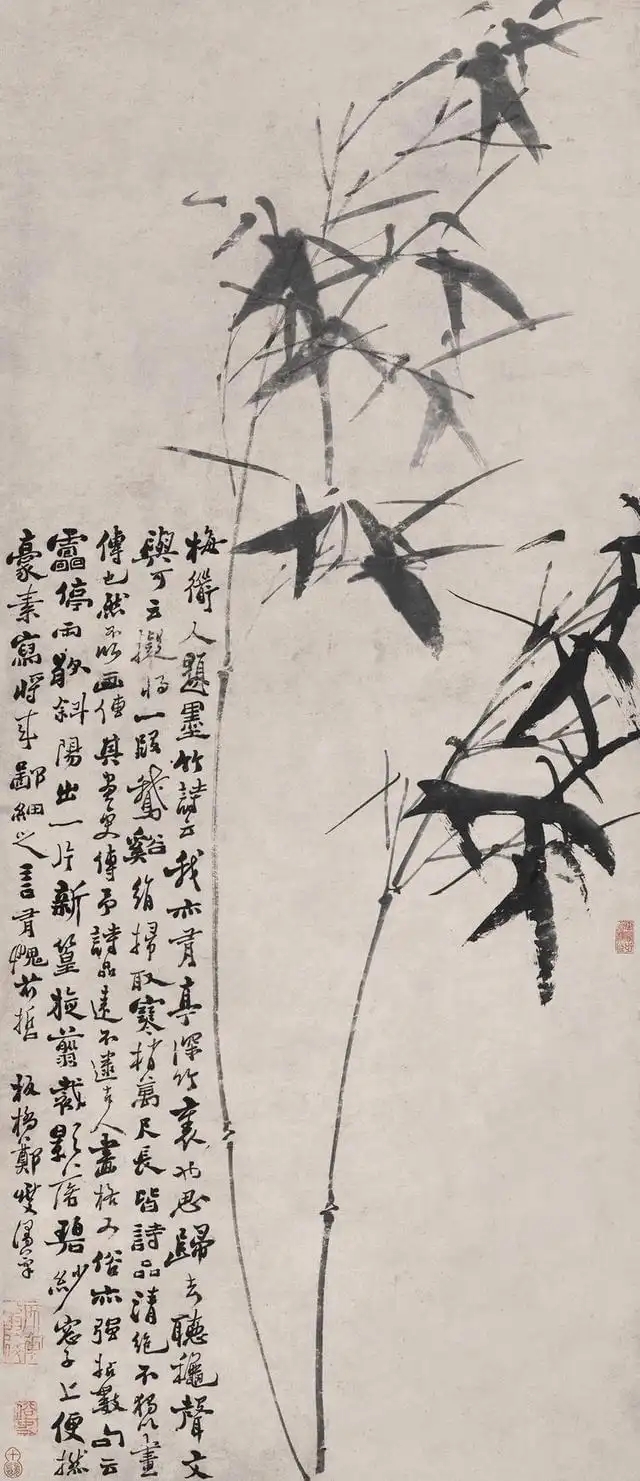 梅衜人題墨竹詩云我亦有亭深竹裏也思歸去聽龝聲文
與可云擬將一段鵞谿絹掃取寒梢萬尺長皆詩品清絶不獨以畫
傳也然不以畫傳其畫更傳予詩品遠不逮古人畫格又俗亦强拈數句云
靁停雨歇斜陽出一片新篁旋翦裁影落碧紗窓子上便撚
豪素寫將來鄙細之言有愧前哲 板橋鄭燮